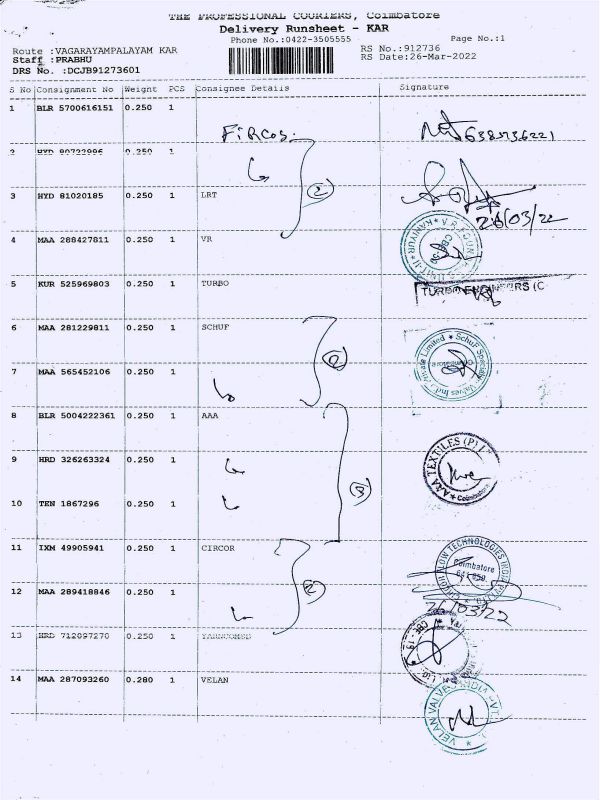 THE PROFESSIONAL COURIERS, Coimbatore
Delivery Runsheet - KAR
Phone No.:0422-3505555
Page No.:1
Route :VAGARAYAMPALAYAM KAR
RS No.:912736
Staff :PRABHU
RS Date:26-Mar-2022
DRS No. :DCJB91273601
S No Consignment No Weight PCS Consignee Details Signature
1 BLR 5700616151 0.250 1
Fircos.
2 HYD 0.250 1
2
3 HYD 81020185 0.250 1 LRT
26/03/22
4 MAA 288427811 0.250 1 VR
5 KUR 525969803 0.250 1 TURBO
TURBO ENGINEERS (C
6 MAA 281229811 0.250 1 SCHUF
Schuf Specialty Valves India Private Limited
7 MAA 565452106 0.250 1
8 BLR 5004222361 0.250 1 AAA
AAA TEXTILES (P) L
Coimbatore
9 HRD 326263324 0.250 1
3
10 TEN 1867296 0.250 1
11 IXM 49905941 0.250 1 CIRCOR
CIRCOR FLOW TECHNOLOGIES INDIA
Coimbatore
2
12 MAA 289418846 0.250 1
26/03/22
13 HRD 712097270 0.250 1
14 MAA 287093260 0.280 1 VELAN
VELAN VALVES INDIA PVT.